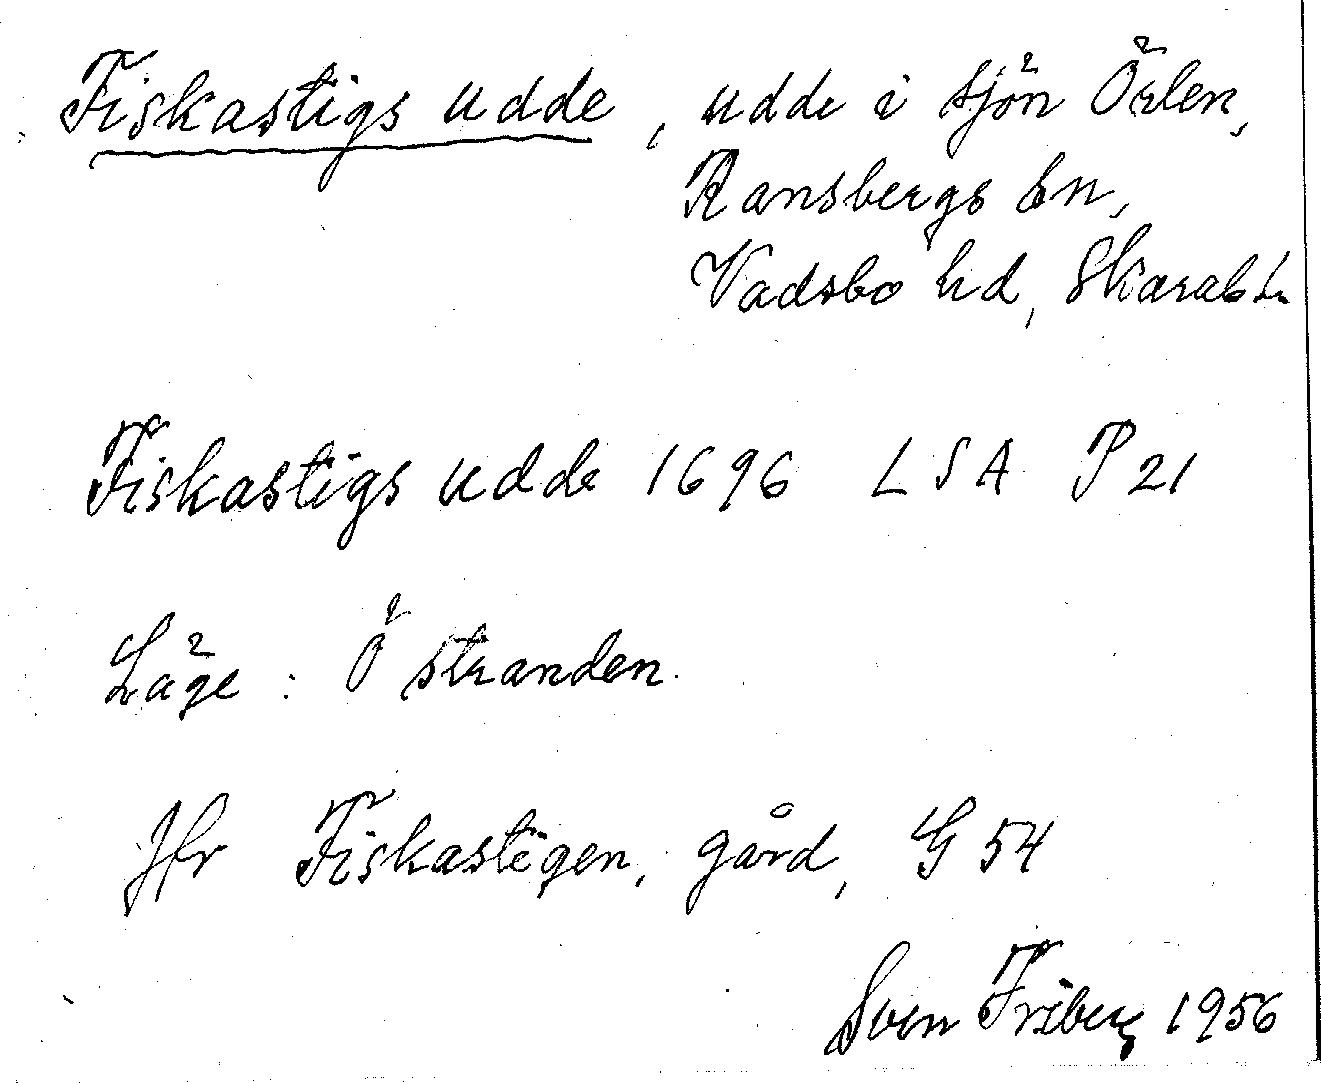 Fiskastigs udde, udde i sjön Örlen,
Ransbergs sn,
Vadsbo hd, Skarab. L.
Fiskastigs udde 1696 LSA P 21
Läge: Ö stranden.
Jfr Fiskastigen, gård, G 54
Sven Friberg 1956